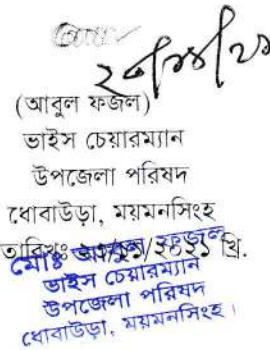 (আবুল ফজল)
ভাইস চেয়ারম্যান
উপজেলা পরিষদ
ধোবাউড়া, ময়মনসিংহ
তারিখঃ খ্রি.
মোঃ আবুল ফজল
ভাইস চেয়ারম্যান
উপজেলা পরিষদ
ধোবাউড়া, ময়মনসিংহ।